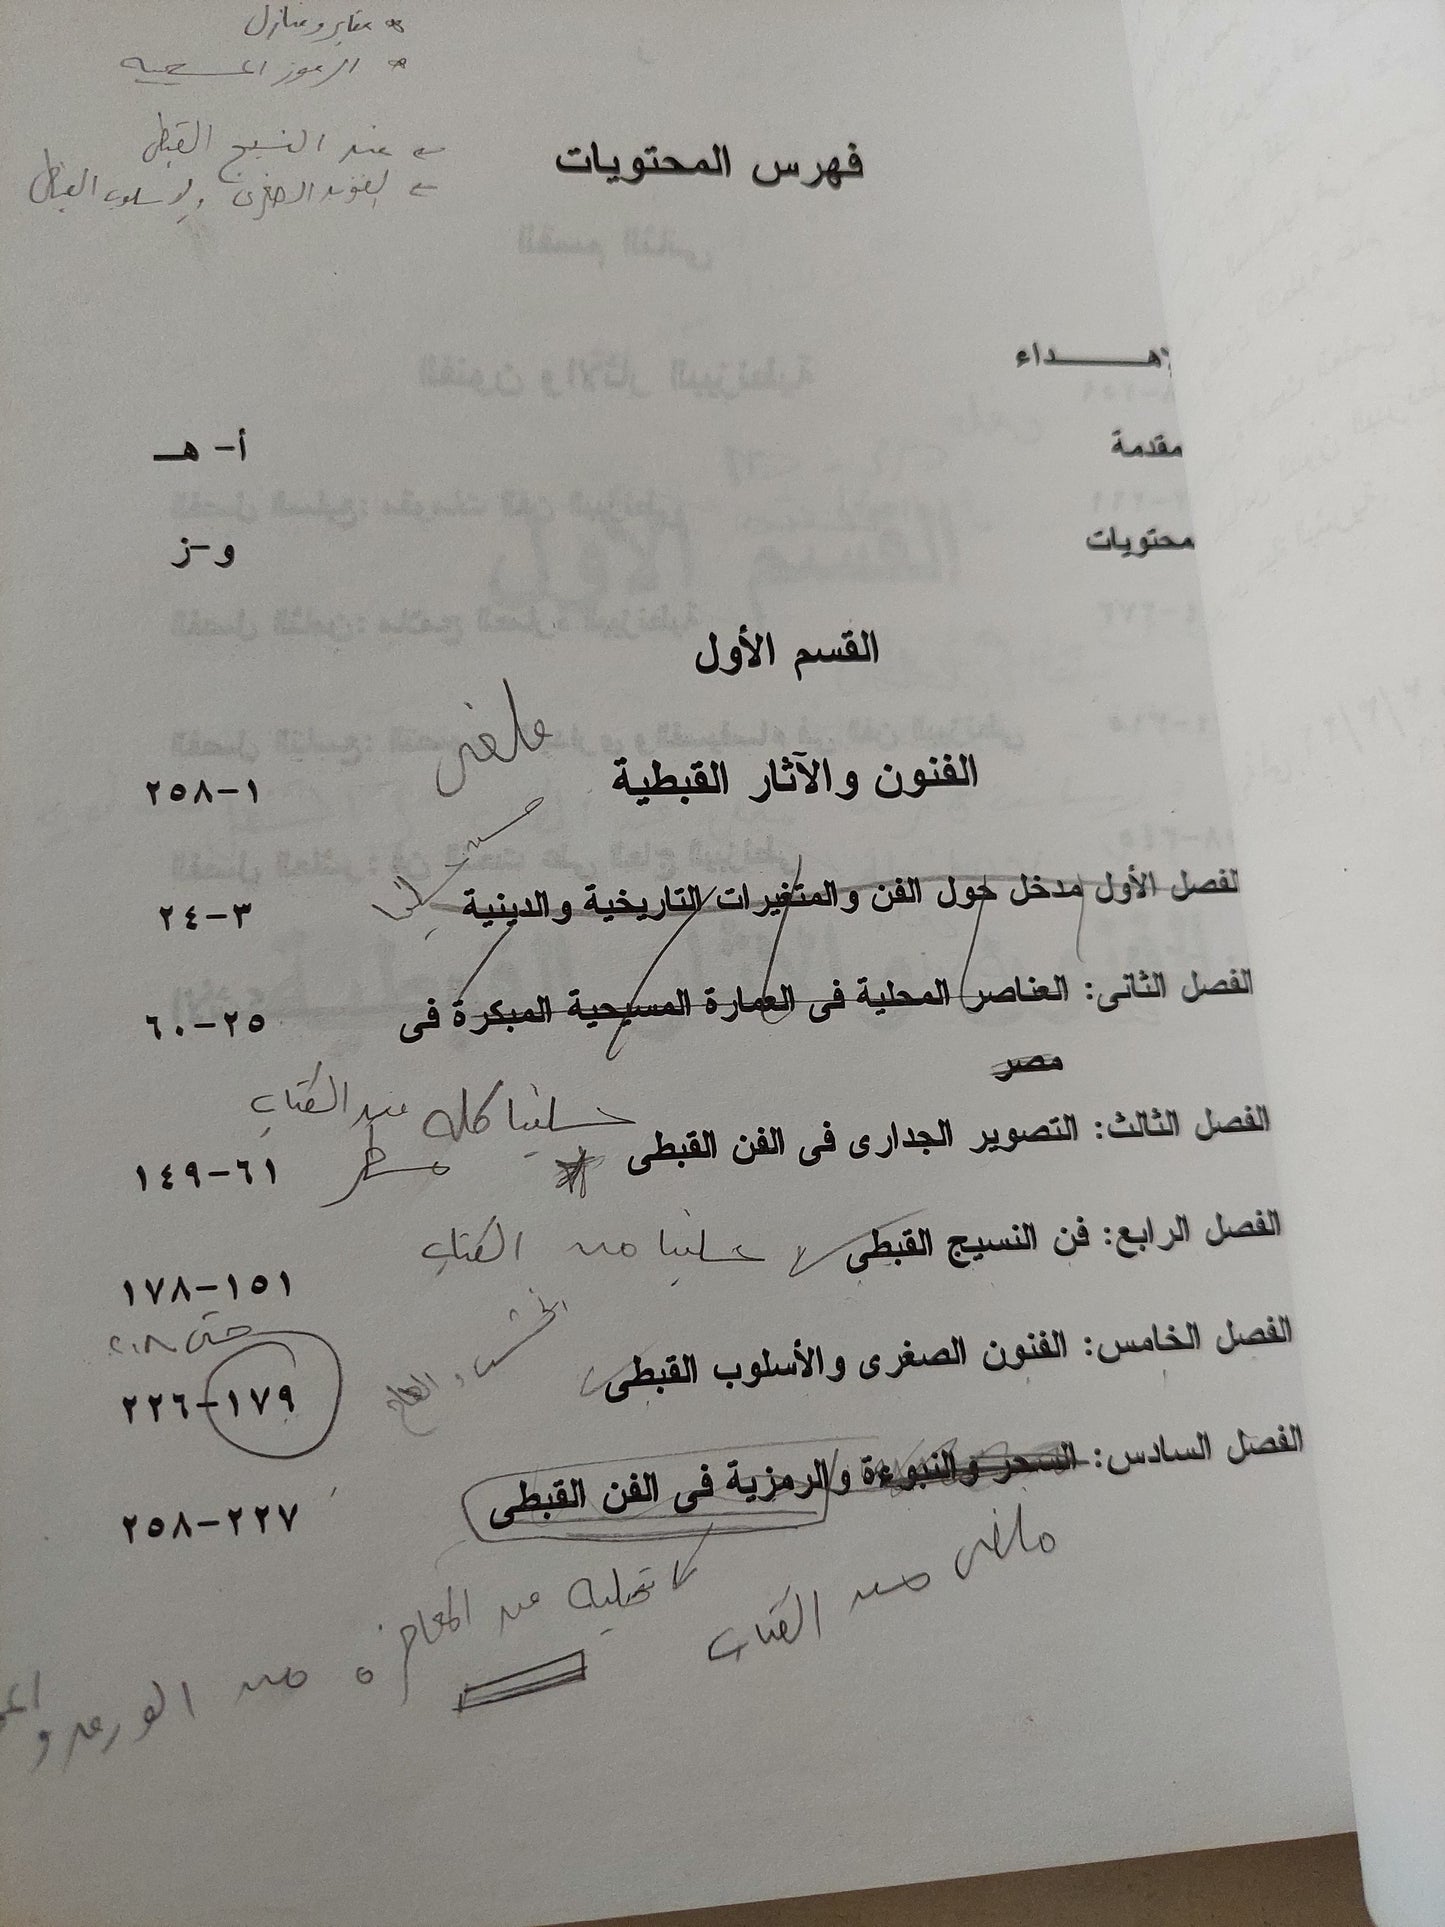 * مقابر ومنازل
* الرموز المسيحية
عند النسيج القبطى
الفنون الصغرى والاسلوب القبطى
فهرس المحتويات
إهـــداء
مقدمة أ- هـ
محتويات و-ز
القسم الأول
ملغى
الفنون والآثار القبطية ١-٢٥٨
لفصل الأول مدخل حول الفن والمتغيرات التاريخية والدينية ٣-٢٤
الفصل الثانى: العناصر المحلية فى العمارة المسيحية المبكرة فى ٢٥-٦٠
مصر
علينا كله من الكتاب
الفصل الثالث: التصوير الجدارى فى الفن القبطى ٦١-١٤٩
الفصل الرابع: فن النسيج القبطى علينا من الكتاب ١٥١-١٧٨
حتى ٢٠٨
الخشب والعاج
الفصل الخامس: الفنون الصغرى والأسلوب القبطى ١٧٩-٢٢٦
الفصل السادس: السحر والنبوءة والرمزية فى الفن القبطى ٢٢٧-٢٥٨
ملغى من الكتاب
من المحاضرة من الورق و